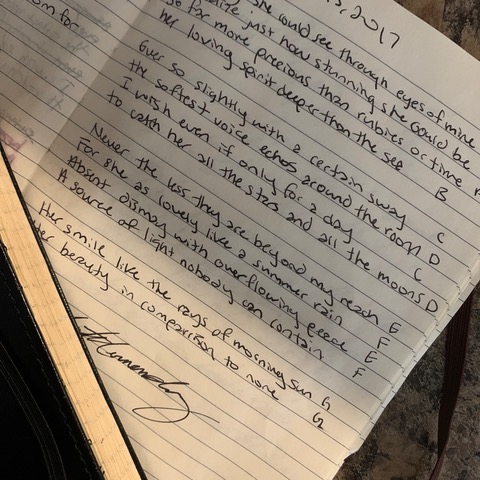 3, 2017
she could see through eyes of mine
just how stunning she could be
so far more precious than rubies or time
her loving spirit deeper than the sea B
Ever so slightly with a certain sway C
the softest voice echos around the room D
I wish even if only for a day C
to catch her all the stars and all the moons D
Never the less they are beyond my reach E
For she as lovely like a summer rain F
Absent dismay with overflowing E
A source of light nobody can contain F
Her smile like the rays of morning sun G
her beauty in comparison to none G
om for